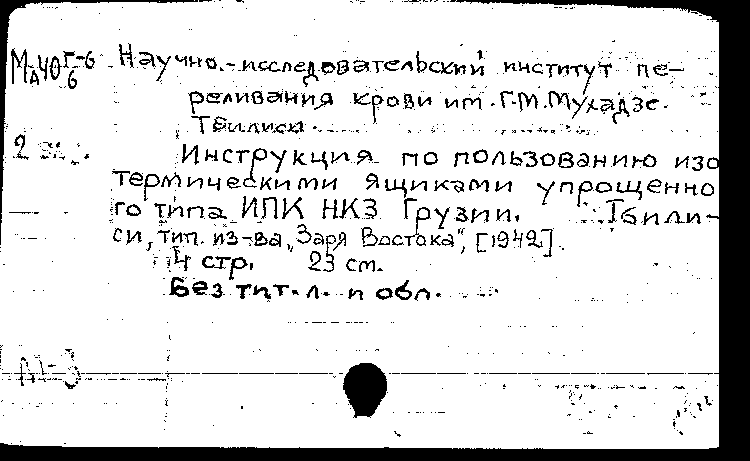 МА40 Г-6 Научно.-исследовательский институт пе-
6
реливания крови им. Г.М.Мухадзе.
Тбилиси.
2 экз.
Инструкция по пользованию изо
термическими ящиками упрощенно
го типа ИПК НКЗ Грузии. Тбили-
си, тип. из-ва „Заря Востока", [1942].
4 стр. 23 см.
Без тит. л. и обл.